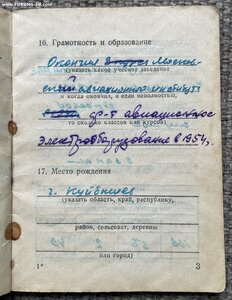 www.FORUMS-SU.com
16. Грамотность и образование
Окончил 2 курса Москов-
ский авиационный институт
(указать какое учебное заведение
и когда окончил, а если неполностью,
ф-т авиационное
то сколько классов или курсов)
электрооборудование в 1954 г.
17. Место рождения
г. Куйбышев
(указать область, край, республику,
район, сельсовет, деревню
или город)
1*
3